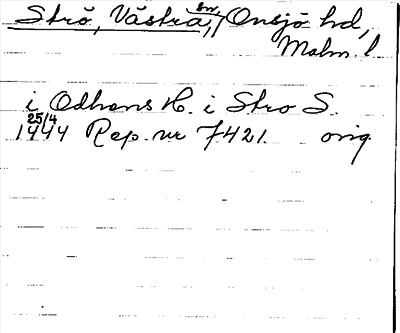 Strö, Västra, sn, Onsjö hd,
Malm. l.
i Odhens H. i Stro S.
25/4
1444 Rep. nr 7421. orig